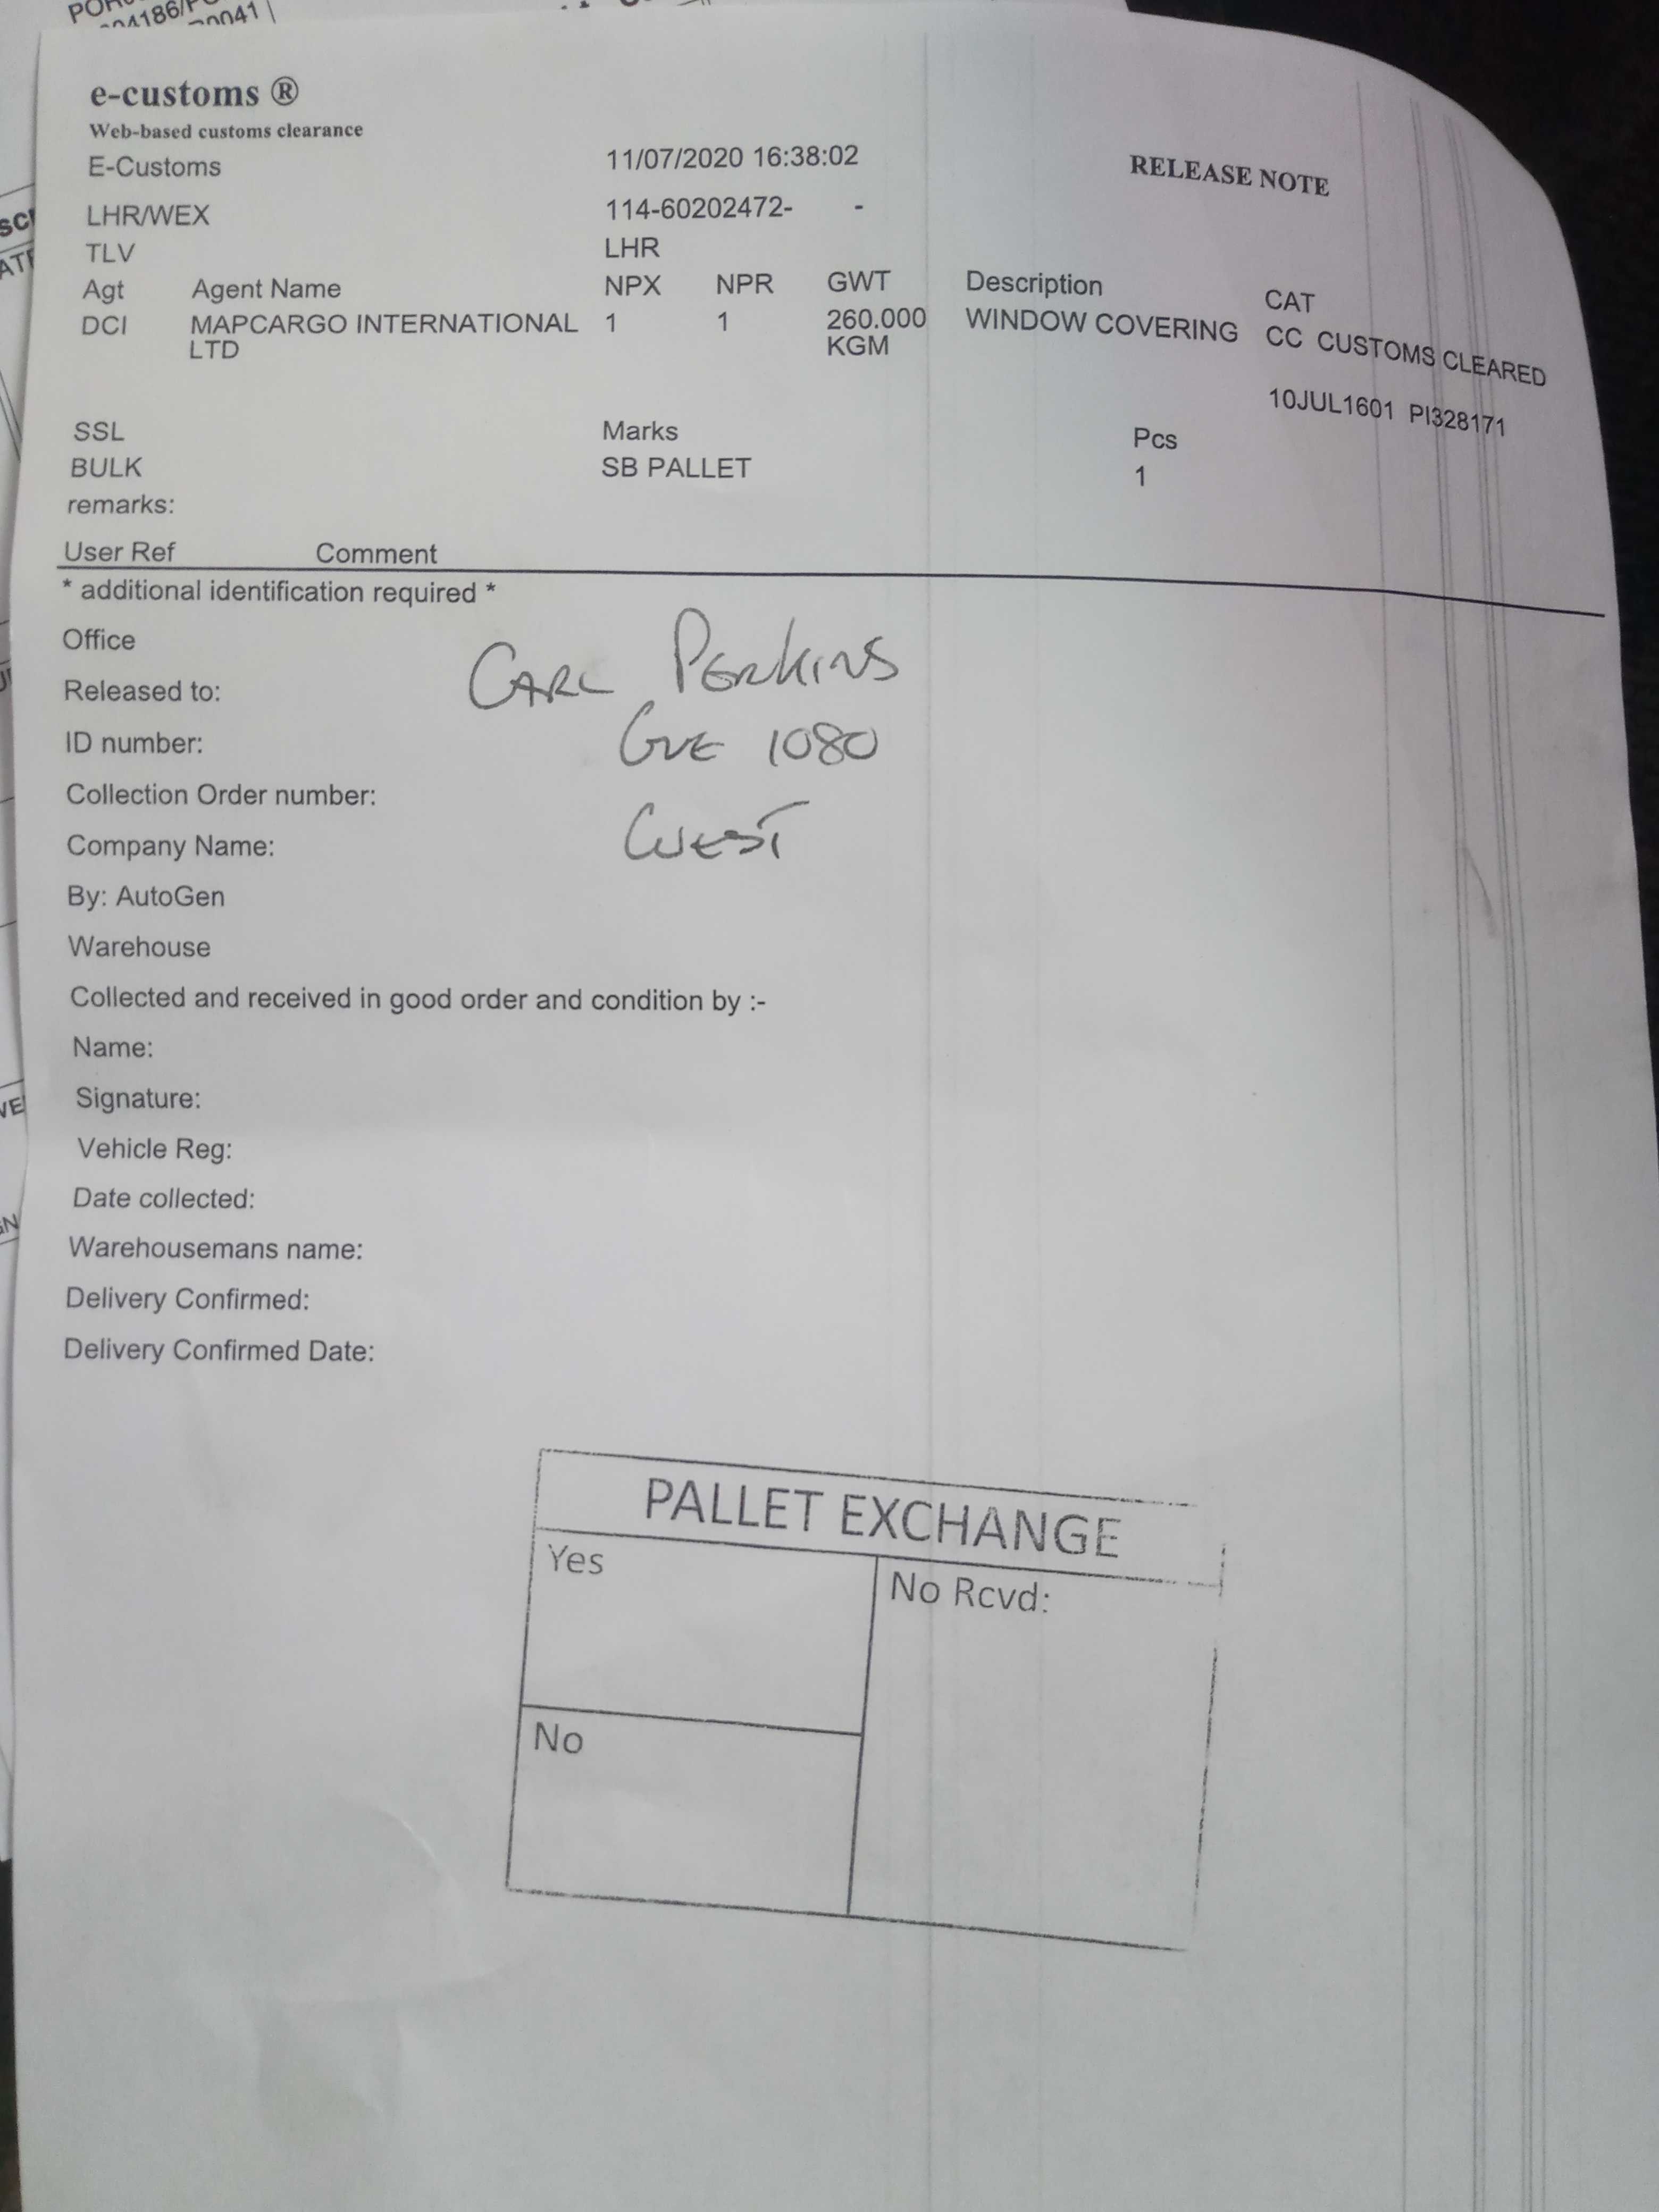 e-customs ®
Web-based customs clearance
E-Customs 11/07/2020 16:38:02 RELEASE NOTE
LHR/WEX 114-60202472- -
TLV LHR
Agt Agent Name NPX NPR GWT Description CAT
DCI MAPCARGO INTERNATIONAL 1 1 260.000 WINDOW COVERING CC CUSTOMS CLEARED
LTD KGM
10JUL1601 PI328171
SSL Marks Pcs
BULK SB PALLET 1
remarks:
User Ref Comment
* additional identification required *
Office
Released to: CARL PERKINS
ID number: GVE 1080
Collection Order number:
Company Name: GWEST
By: AutoGen
Warehouse
Collected and received in good order and condition by :-
Name:
Signature:
Vehicle Reg:
Date collected:
Warehousemans name:
Delivery Confirmed:
Delivery Confirmed Date:
PALLET EXCHANGE
Yes No Rcvd:
No